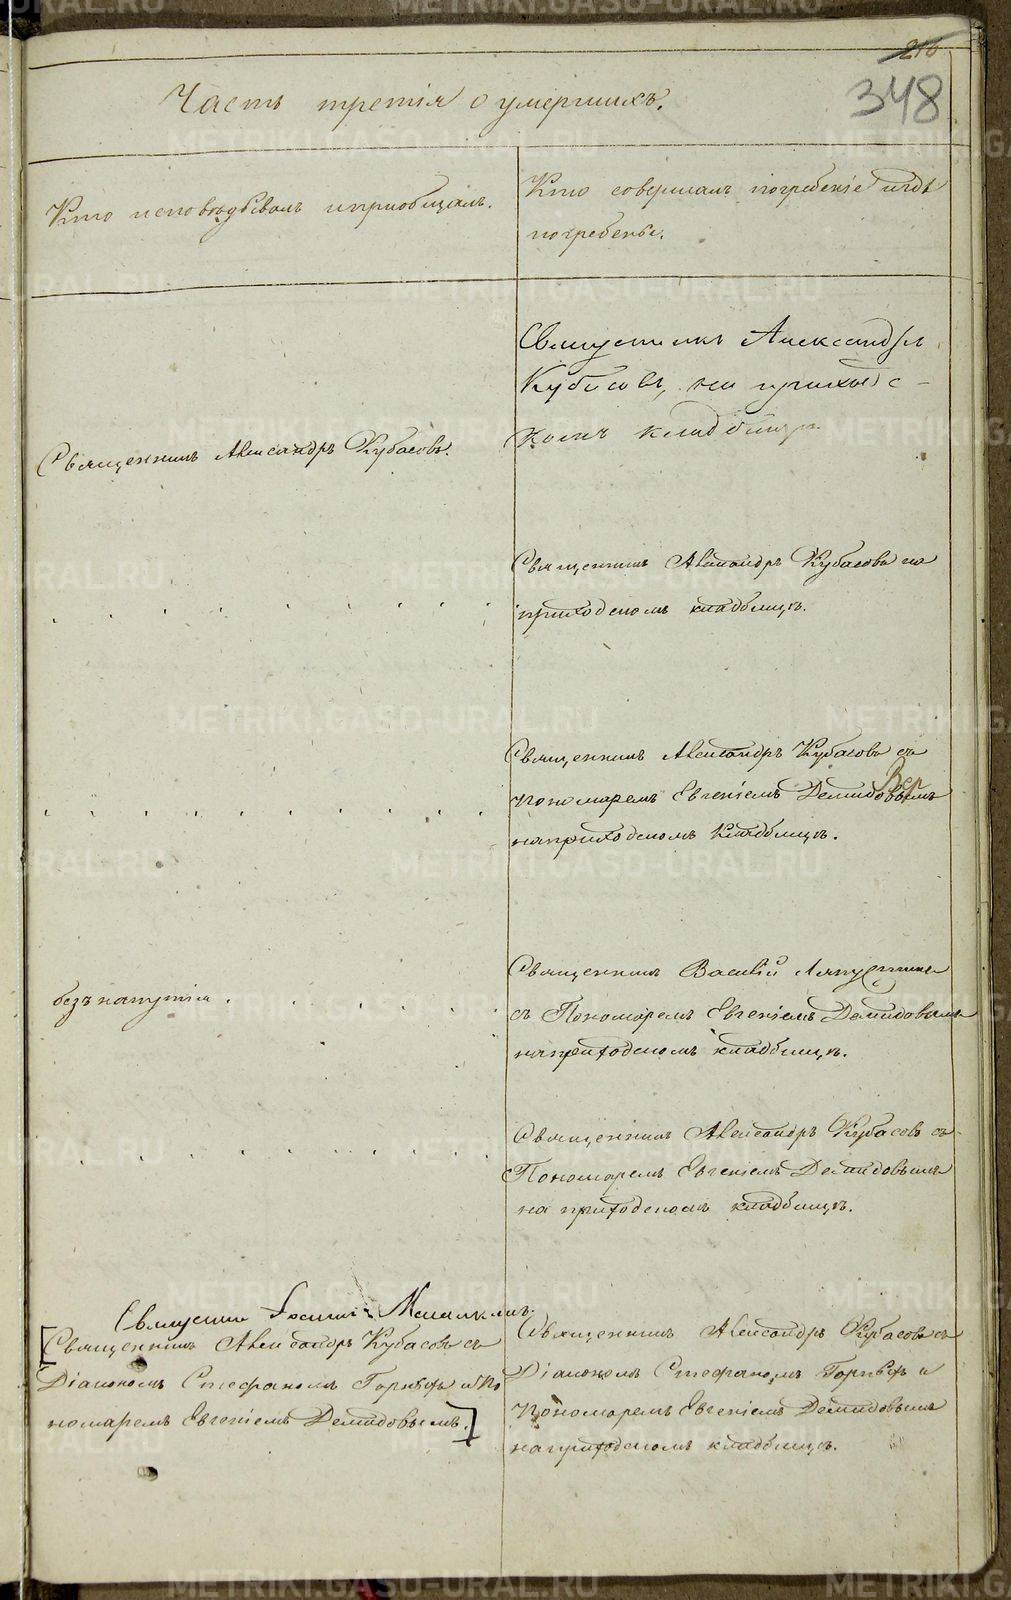 210
348
Часть третія о умершихъ.
Кто исповѣдывалъ и пріобщалъ.
Кто совершалъ погребеніе и гдѣ
погребены.
Священникъ Александръ
Кубасовъ, на приходс-
комъ кладбищѣ
Священникъ Александръ Кубасовъ.
Священникъ Александръ Кубасовъ на
приходскомъ кладбищѣ.
Священникъ Александръ Кубасовъ съ
Пономаремъ Евгеніемъ Демидовымъ
на приходскомъ кладбищѣ.
безъ напутія
Священникъ Василій
съ Пономаремъ Евгеніемъ Демидовымъ
на приходскомъ кладбищѣ.
Священникъ Александръ Кубасовъ съ
Пономаремъ Евгеніемъ Демидовымъ
на приходскомъ кладбищѣ.
[Священникъ Александръ Кубасовъ съ
Діакономъ Стефаномъ и По
номаремъ Евгеніемъ Демидовымъ.]
Священникъ Александръ Кубасовъ съ
Діакономъ Стефаномъ и
Пономаремъ Евгеніемъ Демидовымъ
на приходскомъ кладбищѣ.
METRIKI.GASO-URAL.RU